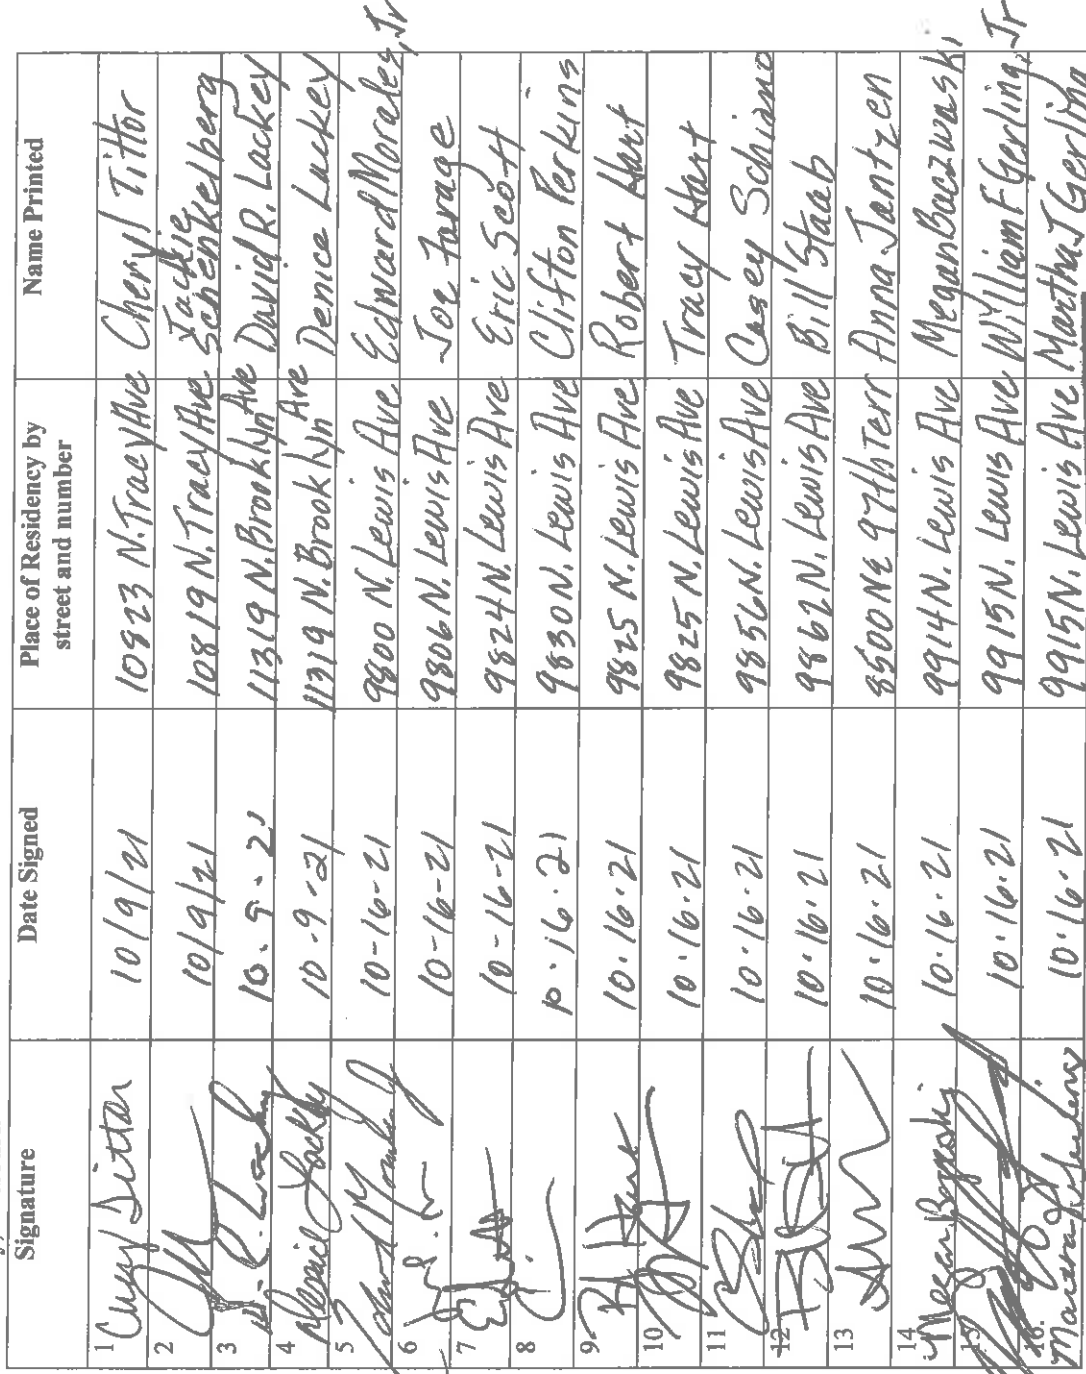 Signature Date Signed Place of Residency by street and number Name Printed
1 Cheryl Tittor 10/9/21 10823 N. Tracy Ave Cheryl Tittor
2 10/9/21 10819 N. Tracy Ave Jackie Schenkelberg
3 10.9.21 11319 N. Brooklyn Ave David R. Lackey
4 10.9.21 11319 N. Brooklyn Ave Denice Lackey
5 10-16-21 9800 N. Lewis Ave Edward Morales, Jr
6 10-16-21 9806 N. Lewis Ave Joe Farage
7 10-16-21 9824 N. Lewis Ave Eric Scott
8 10.16.21 9830 N. Lewis Ave Clifton Perkins
9. 10.16.21 9825 N. Lewis Ave Robert Hart
10 10.16.21 9825 N. Lewis Ave Tracy Hart
11 10.16.21 9856 N. Lewis Ave Casey Schiano
12 10.16.21 9862 N. Lewis Ave Bill Staab
13 10.16.21 8500 NE 97th Terr Anna Jantzen
14 10.16.21 9914 N. Lewis Ave Megan Baczwaski
15 10.16.21 9915 N. Lewis Ave William F Gerling, Jr
16. 10.16.21 9915 N. Lewis Ave Martha J Gerling